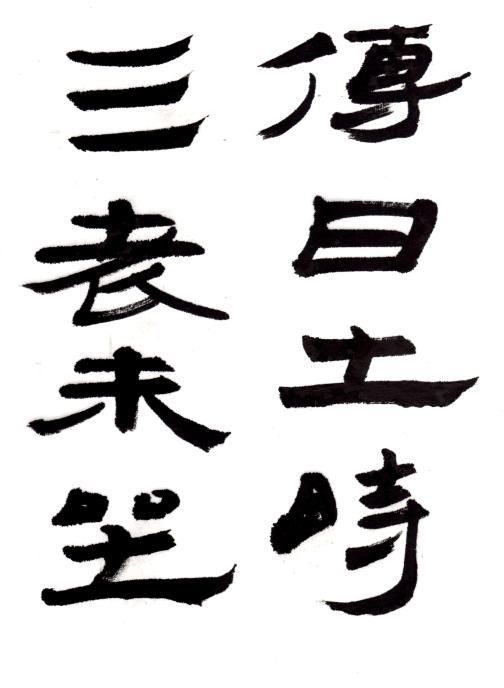 傳曰土時
三老未坐